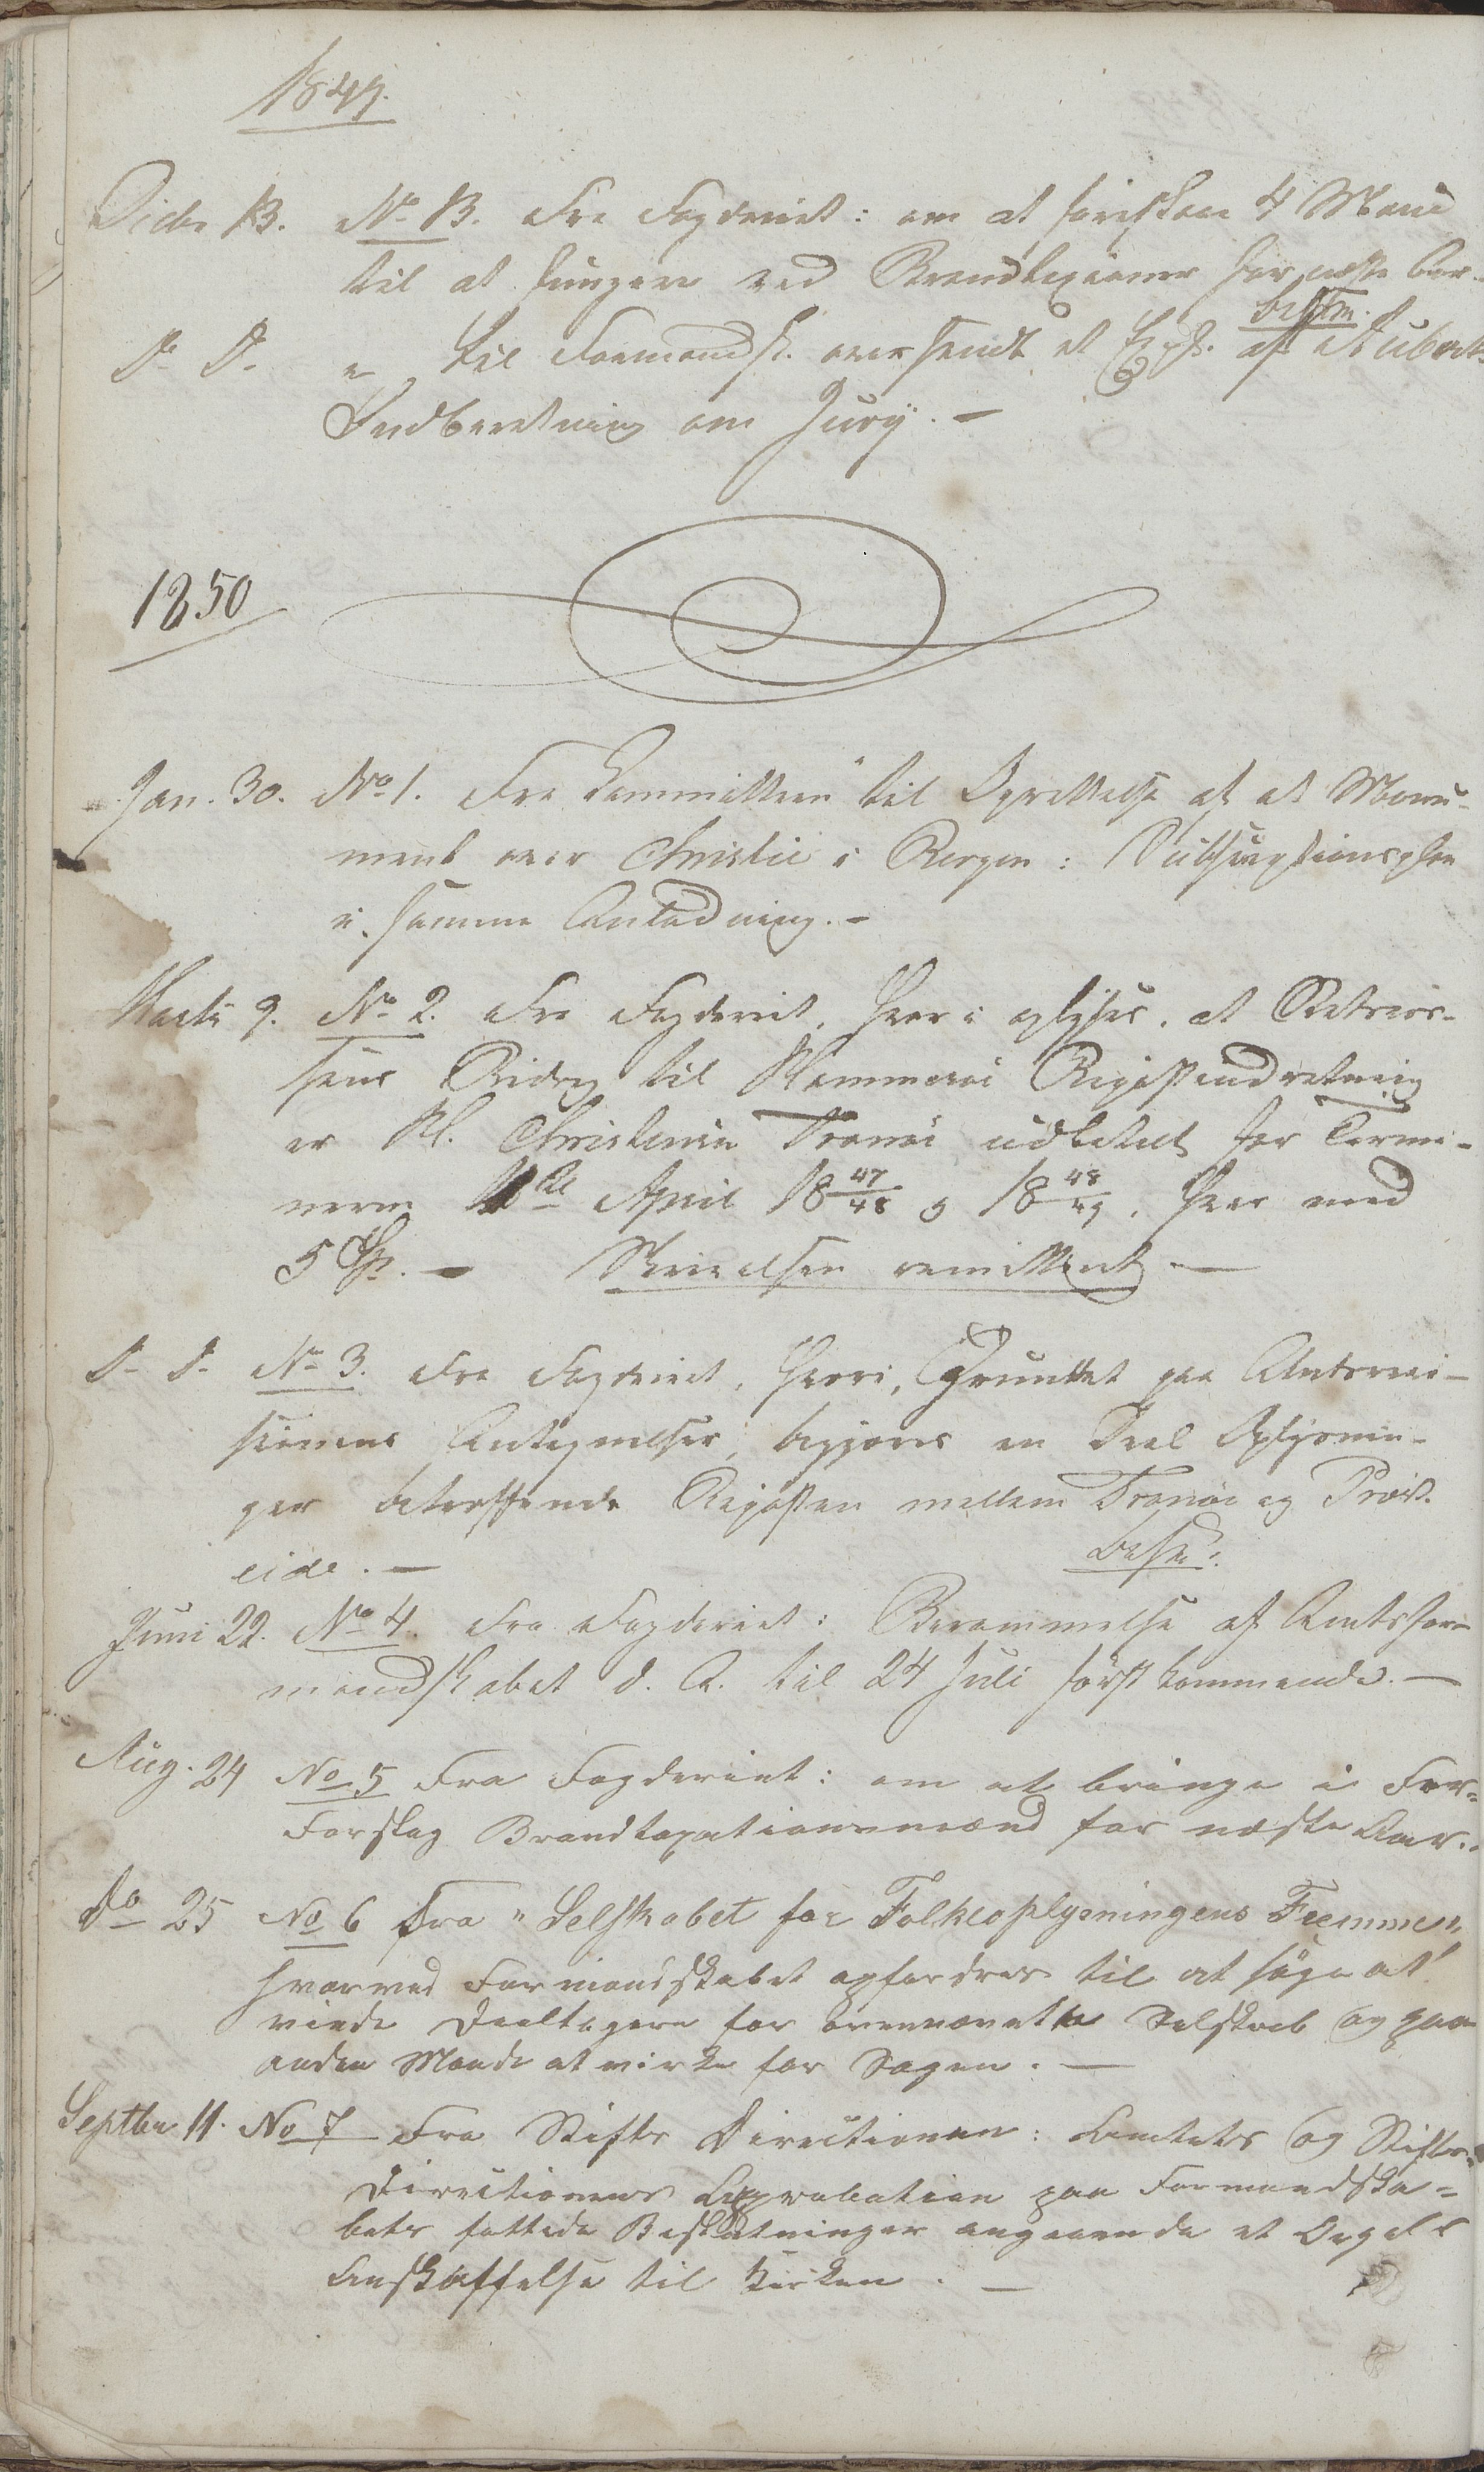 1849.
Decbr 13. No 13. Fra Fogderiet: om at foreslaae 4 Mænd
til at fungere ved Brandtaxationer for næste Aar.
besvm.
D. D. " til Formandsk. oversendt et Expl. af Auberts
Indberetning om Jury. –
1850
Jan. 30. No 1. Fra "Committeen" til Oprettelse af et Monu-
ment over Christie i Bergen: Subscriptionsplan
i samme Anledning. –
Marts 9. No 2. Fra Fogderiet, hvori oplyses, at Statscas-
sens Bidrag til Hammerøi Reisebindretning
er Kl. Christensen Tranøi udbetalt for Termi-
nerne 1ste April 18 47/48 og 18 48/49, hver med
5 Sp. – Skrivelsen remitteret –
D. D. No 3. Fra Fogderiet, hvori, Grundet paa Amtsrevi-
sionens Antegnelser, begjæres en Deel Oplysnin-
ger betreffende Reiposten mellem Tranøi og Præst-
eide. –
besv.
Juni 22. No 4. Fra Fogderiet: Berammelse af Amtsfor-
mandskabet d. A. til 24 Juli førstkommende. –
Aug. 24 No 5 Fra Fogderiet: om at bringe i For-
Forslag Brandtaxationsmænd for næste Aar.
Do 25 No 6 Fra "Selskabet for Folkeoplysningens Fremme",
hvorved Formandskabet opfordres til at søge at
vinde Deeltagere for ovennævnte Selskab og paa
anden Maade at virke for Sagen. –
Septbr 11. No 7 Fra Stifts Directionen: Amtets og Stifts-
Directionens Approbation paa Formandska-
bets fattede Beslutninger angaaende et Orgels
Anskaffelse til Kirken. –